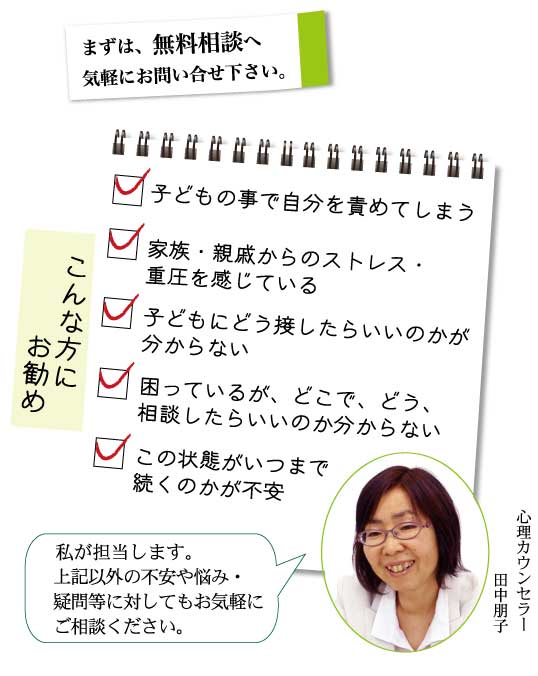 まずは、無料相談へ
気軽にお問い合せ下さい。
こんな方に
お勧め
子どもの事で自分を責めてしまう
家族・親戚からのストレス・
重圧を感じている
子どもにどう接したらいいのかが
分からない
困っているが、どこで、どう、
相談したらいいのか分からない
この状態がいつまで
続くのかが不安
私が担当します。
上記以外の不安や悩み・
疑問等に対してもお気軽に
ご相談ください。
心理カウンセラー
田中朋子